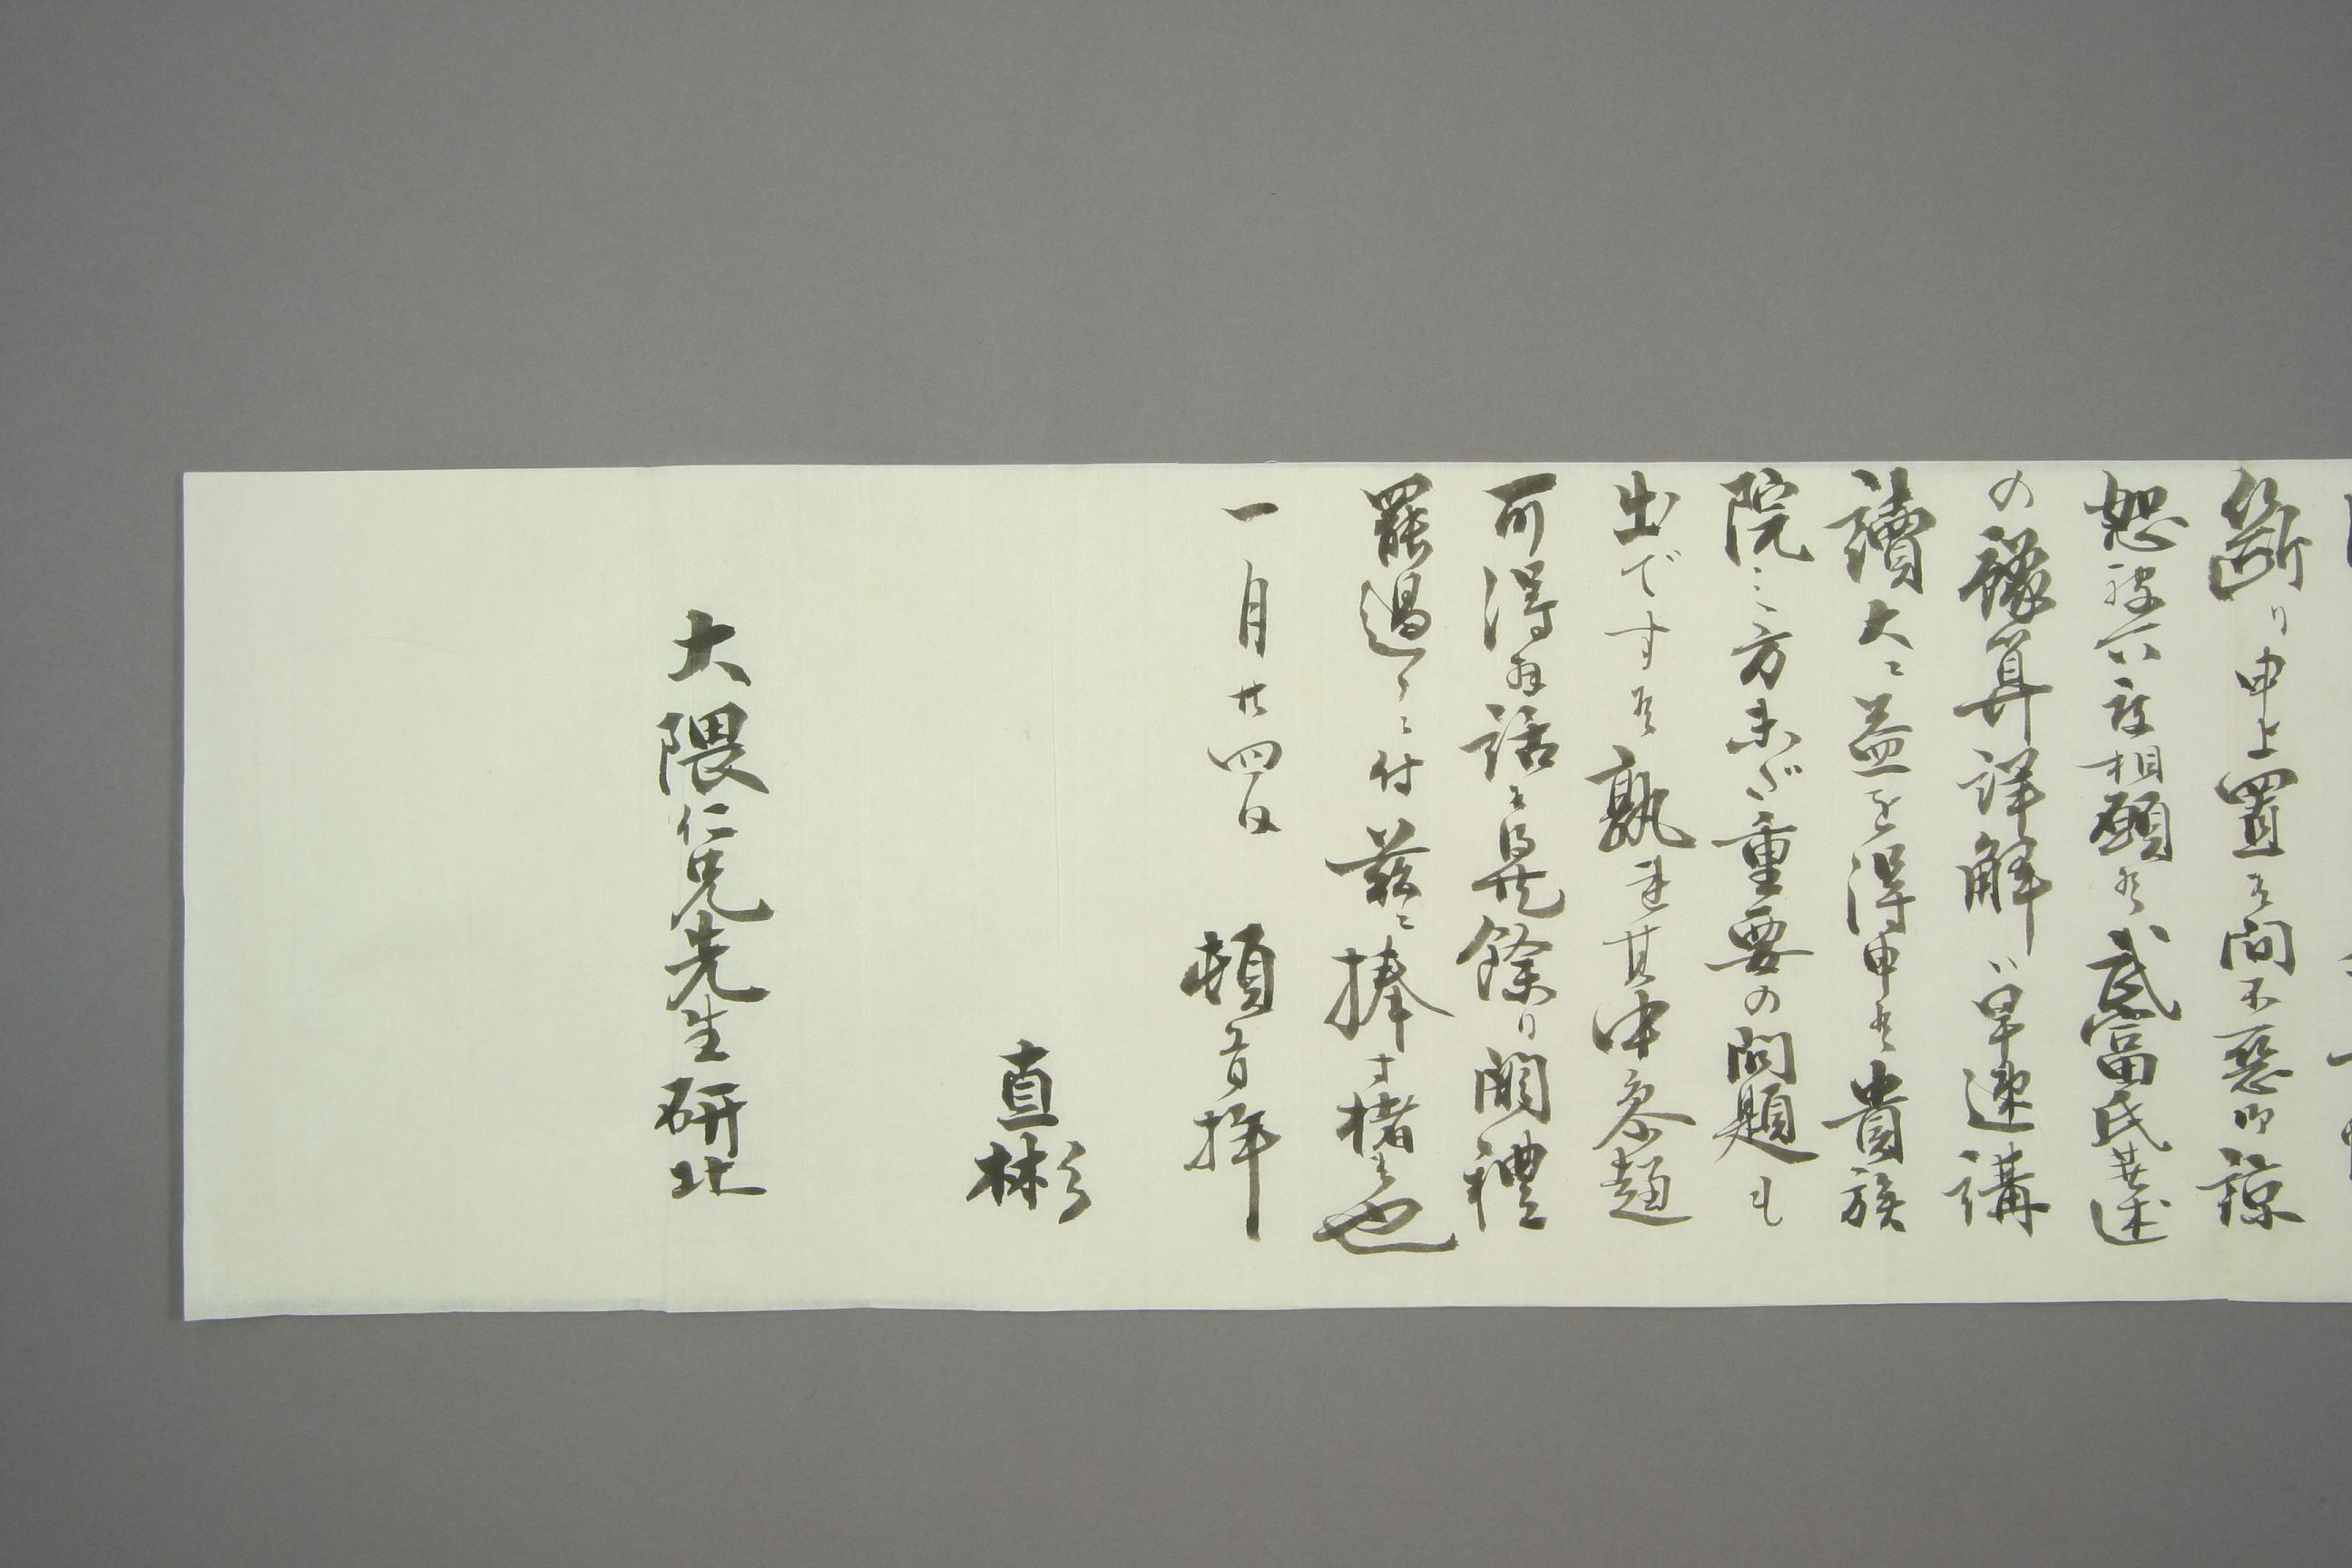 断り申上置候間不悪御諒
恕被下度相願候武富氏著述
の豫算詳解ハ早速講
讀大ニ益を得申候貴族
院ニ之方未ダ重要の問題も
出でず候孰れ其中参趨
可得拝話候得共餘り闕禮
罷過候ニ付茲ニ捧寸楮候也
一月廿四日 頓首拝
直彬
大隈仁兄先生研北